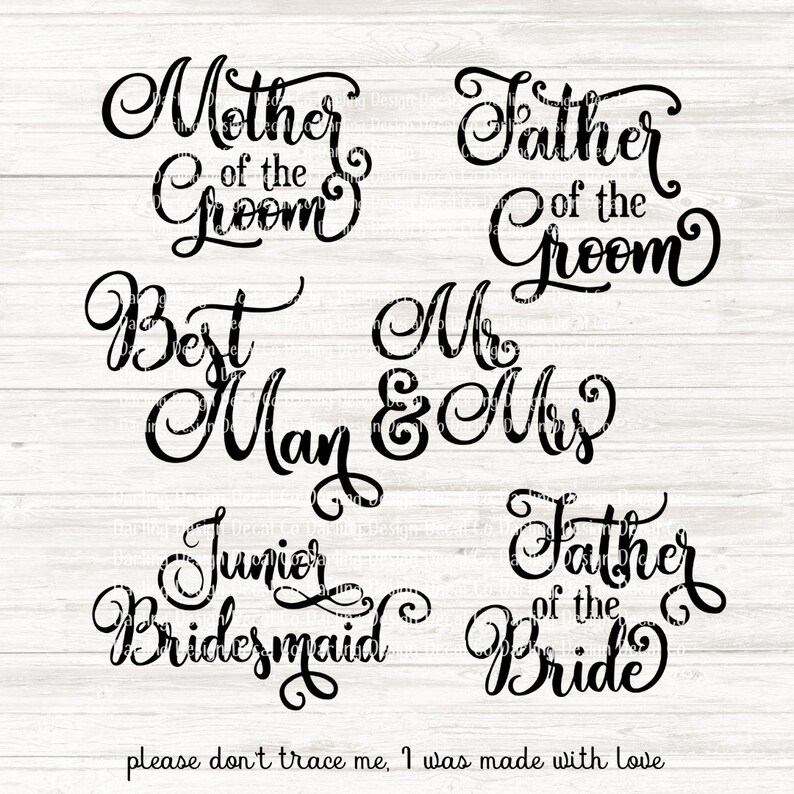 Mother
of the
Groom
Father
of the
Groom
Best
Man
Mr
& Mrs
Junior
Bridesmaid
Father
of the
Bride
Darling Design Decal Co Darling Design Decal Co
please don't trace me, I was made with love